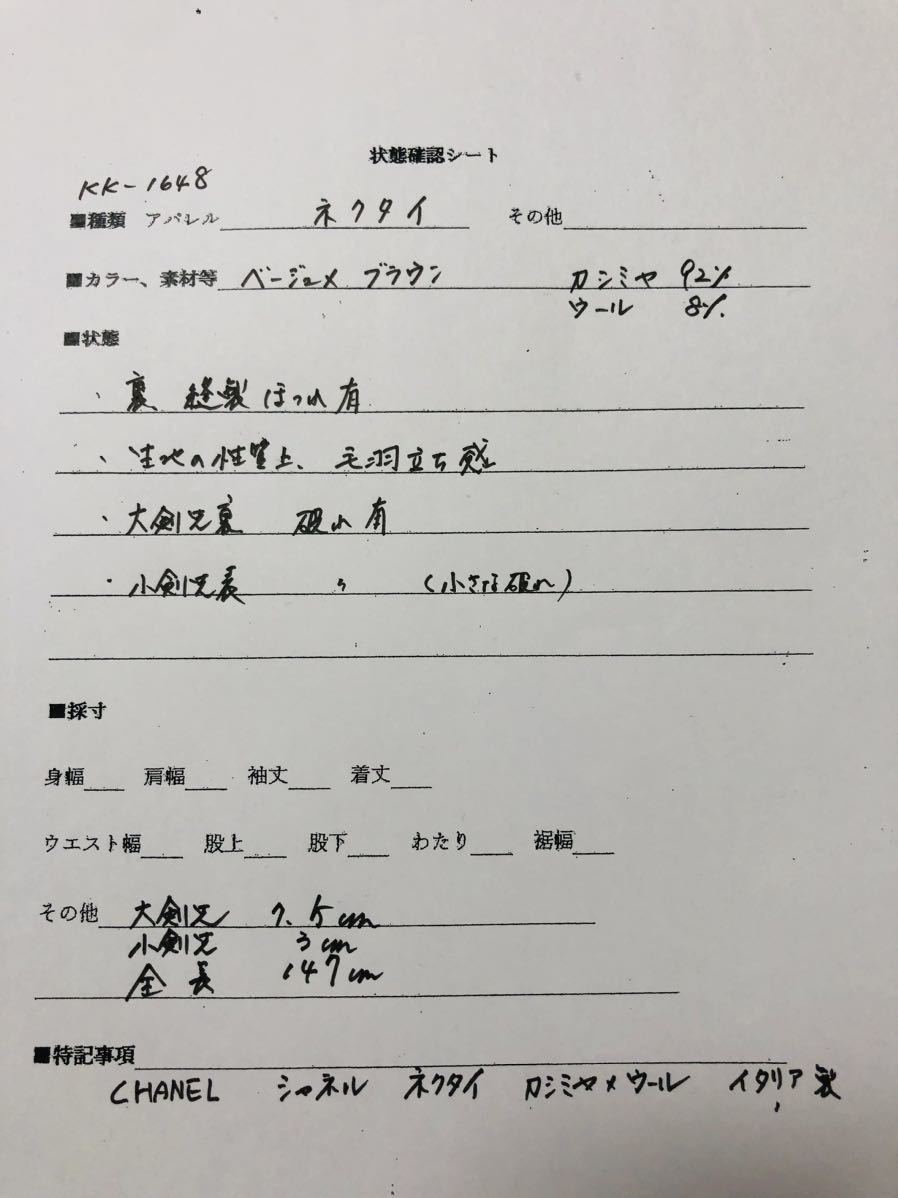 状態確認シート
KK-1648
■種類 アパレル ネクタイ その他
■カラー、素材等 ベージュ×ブラウン カシミヤ 92%
ウール 8%
■状態
・裏 縫製ほつれ有
・生地の性質上、毛羽立ち感
・大剣先裏 破れ有
・小剣先表 〃 (小さな破れ)
■採寸
身幅 肩幅 袖丈 着丈
ウエスト幅 股上 股下 わたり 裾幅
その他 大剣先 7.5cm
小剣先 3cm
全長 147cm
■特記事項
CHANEL シャネル ネクタイ カシミヤ×ウール イタリア製